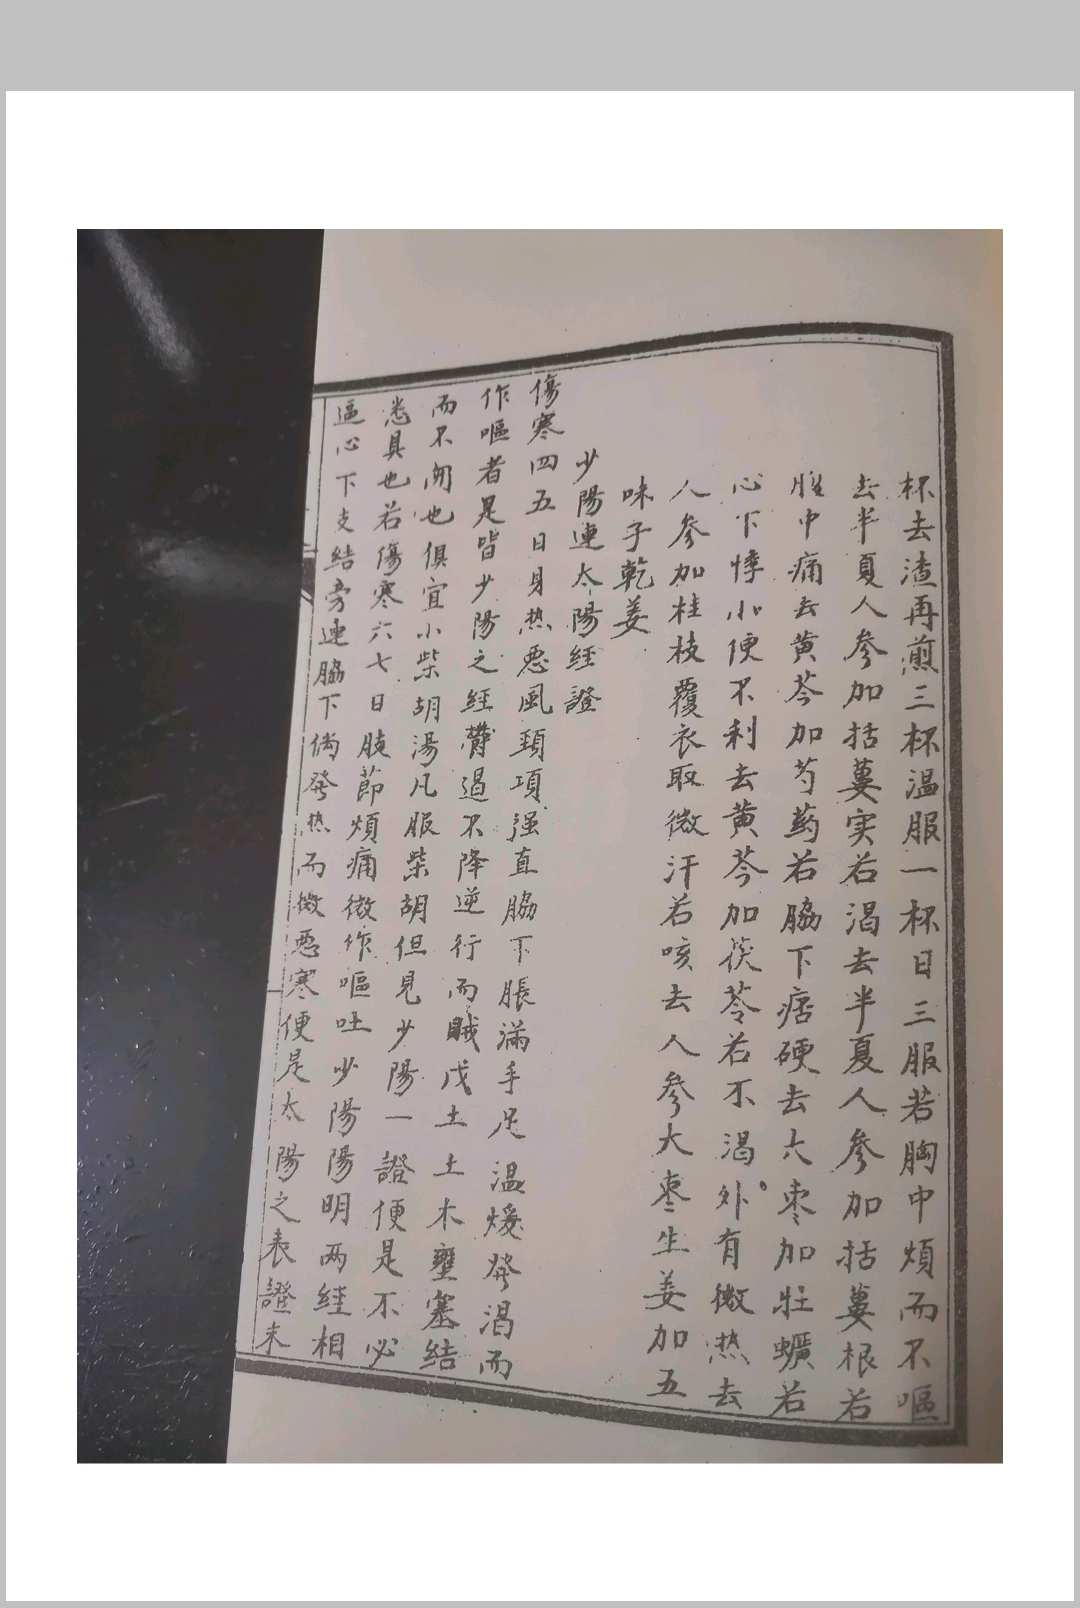 杯去渣再煎三杯温服一杯日三服若胸中煩而不嘔
去半夏人參加括蔞实若渴去半夏人參加括蔞根若
腹中痛去黄芩加芍药若脇下痞硬去大枣加牡蠣若
心下悸小便不利去黄芩加茯苓若不渴外有微热去
人參加桂枝覆衣取微汗若咳去人參大枣生姜加五
味子乾姜
少陽連太陽經證
傷寒四五日身热惡風頚項强直脇下脹滿手足温煖發渴而
作嘔者是皆少陽之經鬱遏不降逆行而賊戊土土木壅塞结
而不開也俱宜小柴胡湯凡服柴胡但見少陽一證便是不必
悉具也若傷寒六七日肢節煩痛微作嘔吐少陽陽明两經相
逼心下支結旁連脇下倘發热而微惡寒便是太陽之表證未